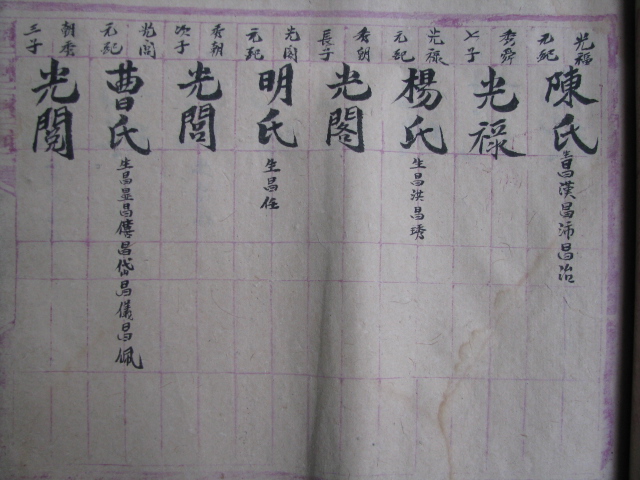 光福
元紀
陳氏
生昌漢昌沛昌治
秀舜
七子
光祿
光祿
元紀
楊氏
生昌洪昌琇
秀朝
長子
光閣
光閣
元紀
明氏
生昌任
秀朝
次子
光閭
光閭
元紀
曹氏
生昌显昌昌岱昌儀昌佩
朝秀
三子
光閱